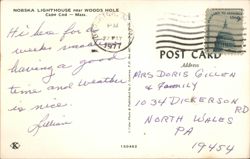 NOBSKA LIGHTHOUSE NEAR WOODS HOLE
CAPE COD — MASS.
PM
1977
POST CARD
Address
Hi here for a
weeks
having a good
time and weather
is nice.
Lillian
MRS DORIS GILLEN
& FAMILY
1034 DICKERSON RD
NORTH WALES
PA
19454
130463